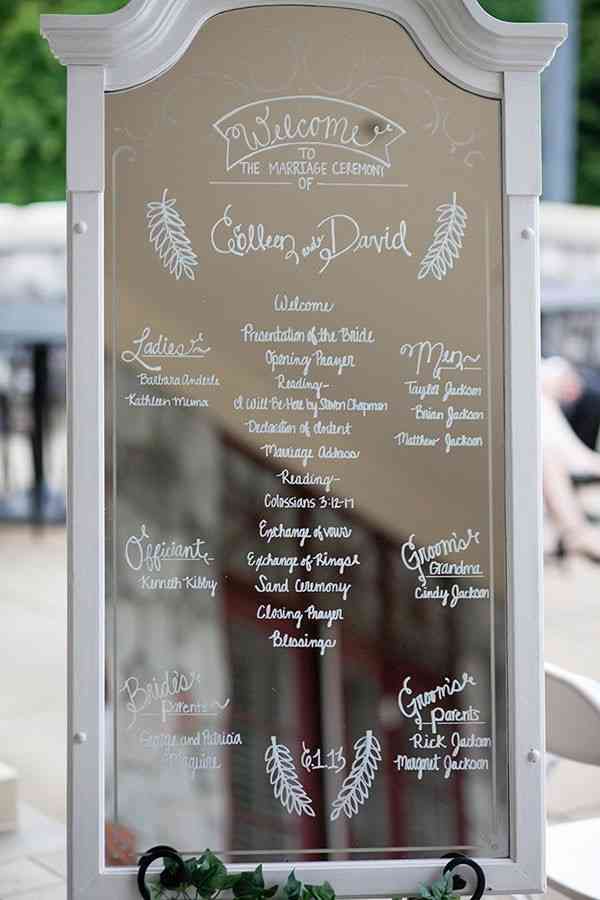 Welcome
TO
THE MARRIAGE CEREMONY
OF
Colleen and David
Welcome
Presentation of the Bride
Opening Prayer
Reading-
I Will Be Here by Steven Chapman
Declaration of Intent
Marriage Address
Reading-
Colossians 3:12-17
Exchange of vows
Exchange of Rings
Sand Ceremony
Closing Prayer
Blessings
Ladies
Barbara Anderle
Kathleen Muma
Men
Taylor Jackson
Brian Jackson
Matthew Jackson
Officiant
Kenneth Kibby
Groom's
Grandma
Cindy Jackson
Bride's
Parents
George and Patricia
Maguire
Groom's
Parents
Rick Jackson
Margret Jackson
6.1.13